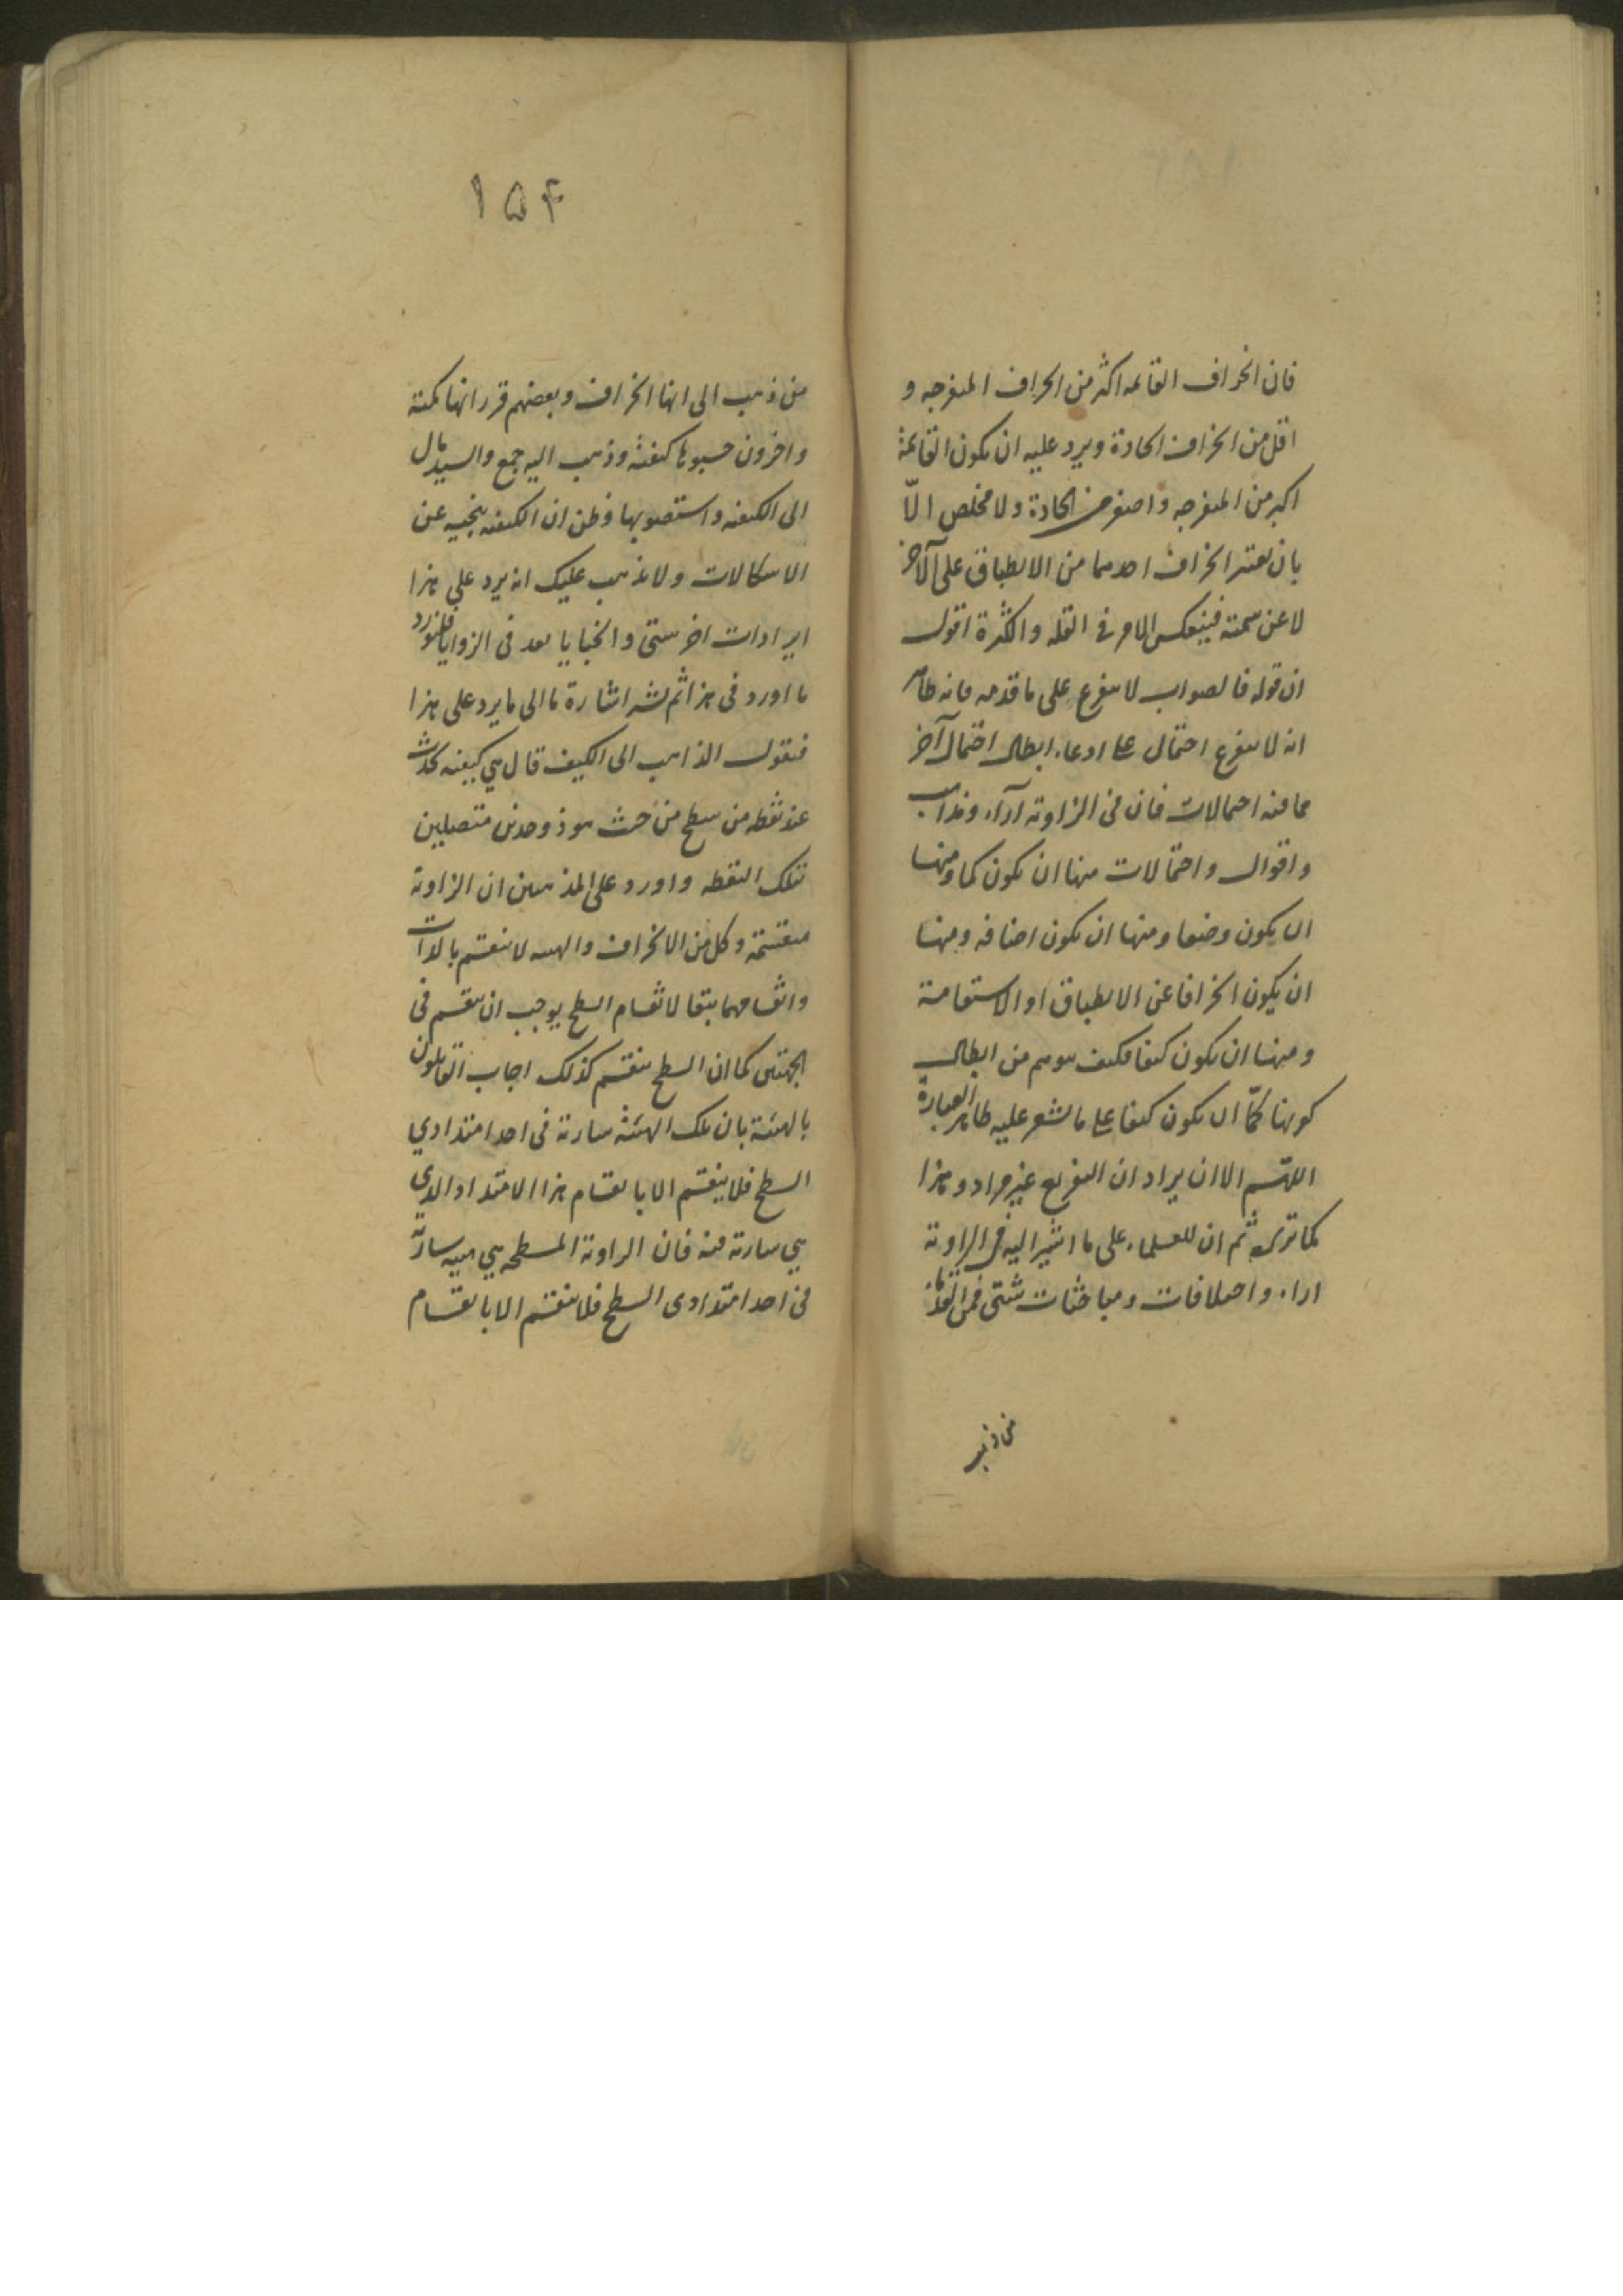 فان انحراف القائمه اكثر من انحراف المنفرجه و
اقل من انحراف الحادة ويرد عليه ان يكون القائمة
اكبر من المنفرجه واصغر من الحادة ولا مخلص الّا
بان يعتبر انحراف احدهما من الانطباق على الآخر
لا عن سمته فينعكس الامر فى القله والكثرة اقول
ان قوله فالصواب لا يتفرع على ما قدمه فانه ظاهر
انه لا يتفرع احتمال على ادعاء ابطال احتمال آخر
مما فيه احتمالات فان فى الزاوية آراء ومذاهب
واقوال واحتمالات منها ان يكون كما ومنها
ان يكون وضعا ومنها ان يكون اضافه ومنها
ان يكون انحرافا عن الانطباق او الاستقامة
ومنها ان يكون كيفا فكيف يتوهم من ابطال
كونها كمّا ان يكون كيفا على ما يشعر عليه ظاهر العبارة
اللهم الا ان يراد ان التفريع غير مراد وهذا
كما ترى ثم ان للعلماء على ما اشير اليه فى الزاوية
اراء واختلافات ومباحثات شتى فمن القدماء
من ذهب
١٥۴
من ذهب الى انها انحراف وبعضهم قرر انها كمية
واخرون حسبوها كيفية وذهب اليه جمع والسيد مال
الى الكيفيه واستصوبها وظن ان الكيفيه ينجيه عن
الاشكالات ولا يذهب عليك انه يرد على هذا
ايرادات اخر شتى والخبايا بعد فى الزوايا فلنورد
ما اورد فى هذا ثم لنشر اشارة ما الى ما يرد على هذا
فنقول الذاهب الى الكيف قال هي كيفيه تحدث
عند نقطه من سطح من حيث هو ذو حدين متصلين
بتلك النقطه واورد على المذهبين ان الزاوية
منقسمة وكل من الانحراف والهيئه لا ينقسم بالذات
وانقسامهما تبعا لانقسام السطح يوجب ان ينقسم فى
الجهتين كما ان السطح ينقسم كذلك اجاب القايلون
بالهيئة بان تلك الهيئة سارية فى احد امتدادي
السطح فلا ينقسم الا بانقسام هذا الامتداد الذي
هي سارية فيه فان الزاوية المسطحه هي هيئه سارية
فى احد امتدادى السطح فلا ينقسم الا بانقسام